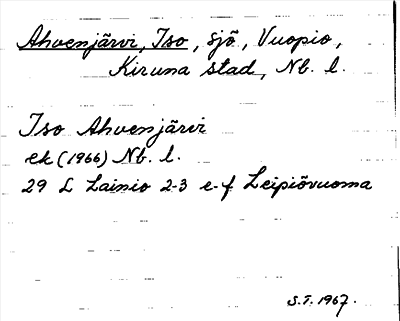 Ahvenjärvi, Iso, sjö, Vuopio,
Kiruna stad, Nb. l.
Iso Ahvenjärvi
ek (1966) Nb. l.
29 L Lainio 2-3 e-f Leipiövuoma
S.T. 1967.